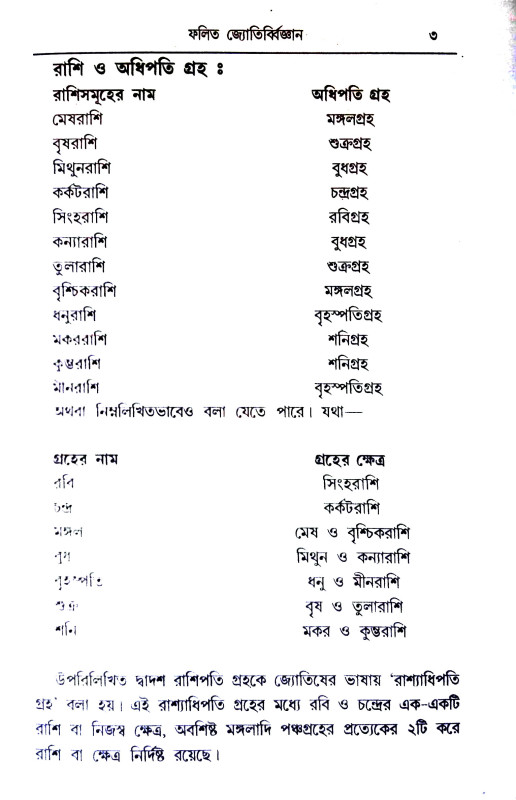 ফলিত জ্যোতির্ব্বিজ্ঞান ৩
রাশি ও অধিপতি গ্রহ :
রাশিসমূহের নাম অধিপতি গ্রহ
মেষরাশি মঙ্গলগ্রহ
বৃষরাশি শুক্রগ্রহ
মিথুনরাশি বুধগ্রহ
কর্কটরাশি চন্দ্রগ্রহ
সিংহরাশি রবিগ্রহ
কন্যারাশি বুধগ্রহ
তুলারাশি শুক্রগ্রহ
বৃশ্চিকরাশি মঙ্গলগ্রহ
ধনুরাশি বৃহস্পতিগ্রহ
মকররাশি শনিগ্রহ
কুম্ভরাশি শনিগ্রহ
মীনরাশি বৃহস্পতিগ্রহ
অথবা নিম্নলিখিতভাবেও বলা যেতে পারে। যথা—
গ্রহের নাম গ্রহের ক্ষেত্র
রবি সিংহরাশি
চন্দ্র কর্কটরাশি
মঙ্গল মেষ ও বৃশ্চিকরাশি
বুধ মিথুন ও কন্যারাশি
বৃহস্পতি ধনু ও মীনরাশি
শুক্র বৃষ ও তুলারাশি
শনি মকর ও কুম্ভরাশি
উপরিলিখিত দ্বাদশ রাশিপতি গ্রহকে জ্যোতিষের ভাষায় ‘রাশ্যাধিপতি
গ্রহ’ বলা হয়। এই রাশ্যাধিপতি গ্রহের মধ্যে রবি ও চন্দ্রের এক-একটি
রাশি বা নিজস্ব ক্ষেত্র, অবশিষ্ট মঙ্গলাদি পঞ্চগ্রহের প্রত্যেকের ২টি করে
রাশি বা ক্ষেত্র নির্দিষ্ট রয়েছে।